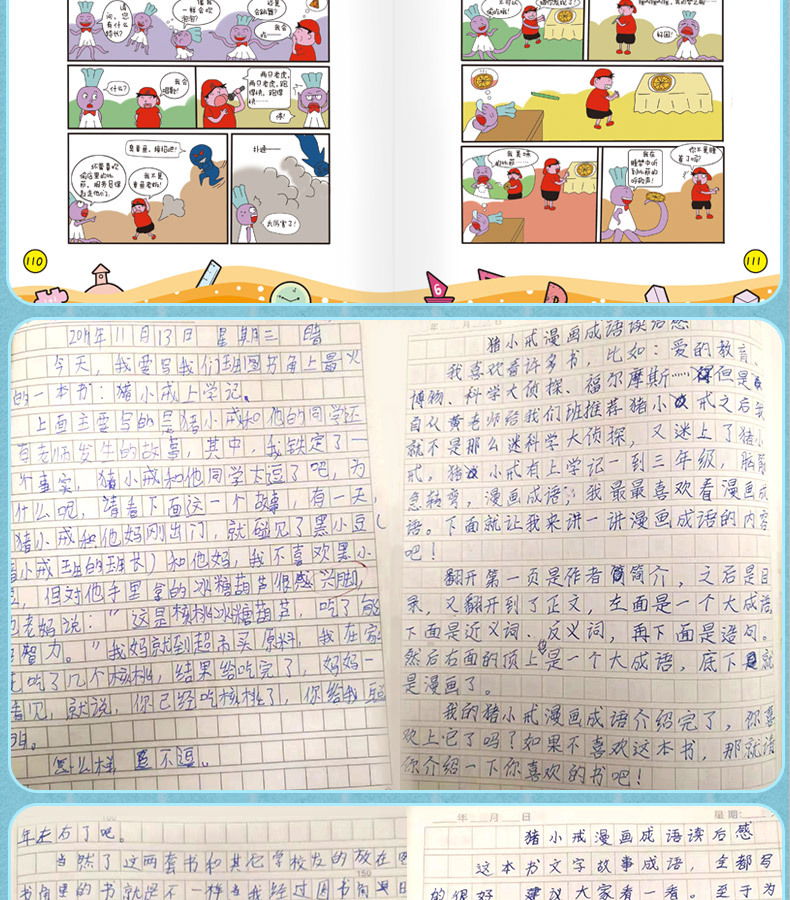 请问，您有什么特长？
一样会吃泡？
我会吃——
什么？
我会唱歌！
两只老虎，两只老虎，跑得快，跑得快……
停！
章鱼哥，接招吧！
我不是章鱼老师！
扑通——
太厉害了！
110
好困！
我在睡梦中听到比萨的呼救声！
你不是睡着了吗？
111
6
11月13日 星期三 晴
今天，我要写我们班图书角上最火
的一本书：猪小戒上学记。
上面主要写的是猪小戒和他的同学还
有老师发生的故事，其中，我铁定了一
个事实，猪小戒和他同学太逗了吧，为
什么呢，请看下面这一个故事，有一天，
猪小戒和他妈刚出门，就碰见了黑小豆（
猪小戒班的班长）和他妈，我不喜欢黑小
豆，但对他手里拿的冰糖葫芦很感兴趣，
老妈说：“这是核桃冰糖葫芦，吃了能
智力。”我妈就到超市买原料，我在家
吃了几个核桃，结果给吃完了，妈妈一
看见，就说，你已经吃核桃了，你给我
怎么样 逗不逗。
年 月 日
猪小戒漫画成语读后感
我喜欢看许多书，比如：爱的教育、
博物、科学大侦探、福尔摩斯……但是
自从黄老师给我们班推荐猪小戒之后我
就不是那么迷科学大侦探，又迷上了猪小
戒，猪小戒有上学记一到三年级，脑筋
急转弯，漫画成语；我最最喜欢看漫画成
语。下面就让我来讲一讲漫画成语的内容
吧！
翻开第一页是作者简介，之后是目
录，又翻开到了正文，左面是一个大成语
下面是近义词、反义词，再下面是造句。
然后右面的顶上是一个大成语，底下就
是漫画了。
我的猪小戒漫画成语介绍完了，你喜
欢上它了吗？如果不喜欢这本书，那就请
你介绍一下你喜欢的书吧！
年左右了吧。
当然了这两套书和其它学校发的放在图
书角里的书就是不一样当我经过图书角
150
年 月 日
星期：
猪小戒漫画成语读后感
这本书文字故事成语，全都写
的很好 建议大家看一看。至于为